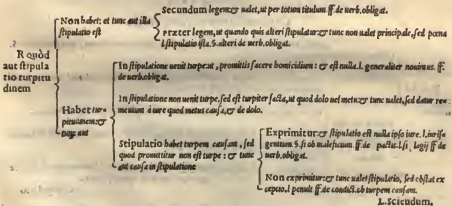 Secundum legem: & ualet, ut per totum titulum ff. de uerb. obligat.
Non habet: et tunc aut illa
stipulatio est
Præter legem, ut quando quis alteri stipulatur: & tunc non ualet principale, sed pœna
l. stipulatio ista. §. alteri de uerb. obligat.
R quòd
aut stipula
tio turpitu
dinem
In stipulatione uenit turpe: ut, promittis facere homicidium: & est nulla. l. generaliter nouimus. ff.
de uerb. obligat.
In stipulatione non uenit turpe, sed est turpiter facta, ut quod dolo uel metu: & tunc ualet, sed datur re
medium à iure quod metus causa, & de dolo.
Habet tur-
pitudinem: &
aut
Stipulatio habet turpem causam, sed
quod promittitur non est turpe: & tunc
aut causa in stipulatione
Exprimitur: & stipulatio est nulla ipso iure. l. iuris
gentium. §. si ob maleficium. ff. de pactis. l. si legij ff. de
uerb. oblig.
Non exprimitur: & tunc ualet stipulatio, sed obstat ex
ceptio, l. penult. ff. de condict. ob turpem causam.
L. Sciendum,